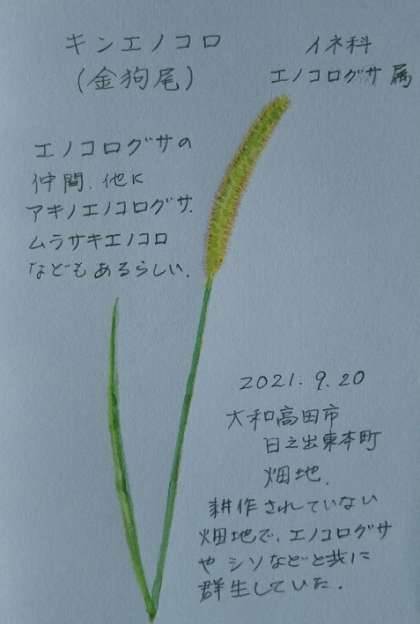 キンエノコロ
(金狗尾)
イネ科
エノコログサ属
エノコログサの
仲間、他に
アキノエノコログサ、
ムラサキエノコロ
などもあるらしい。
2021.9.20
大和高田市
日之出東本町
畑地。
耕作されていない
畑地で、エノコログサ
やシソなどと共に
群生していた。